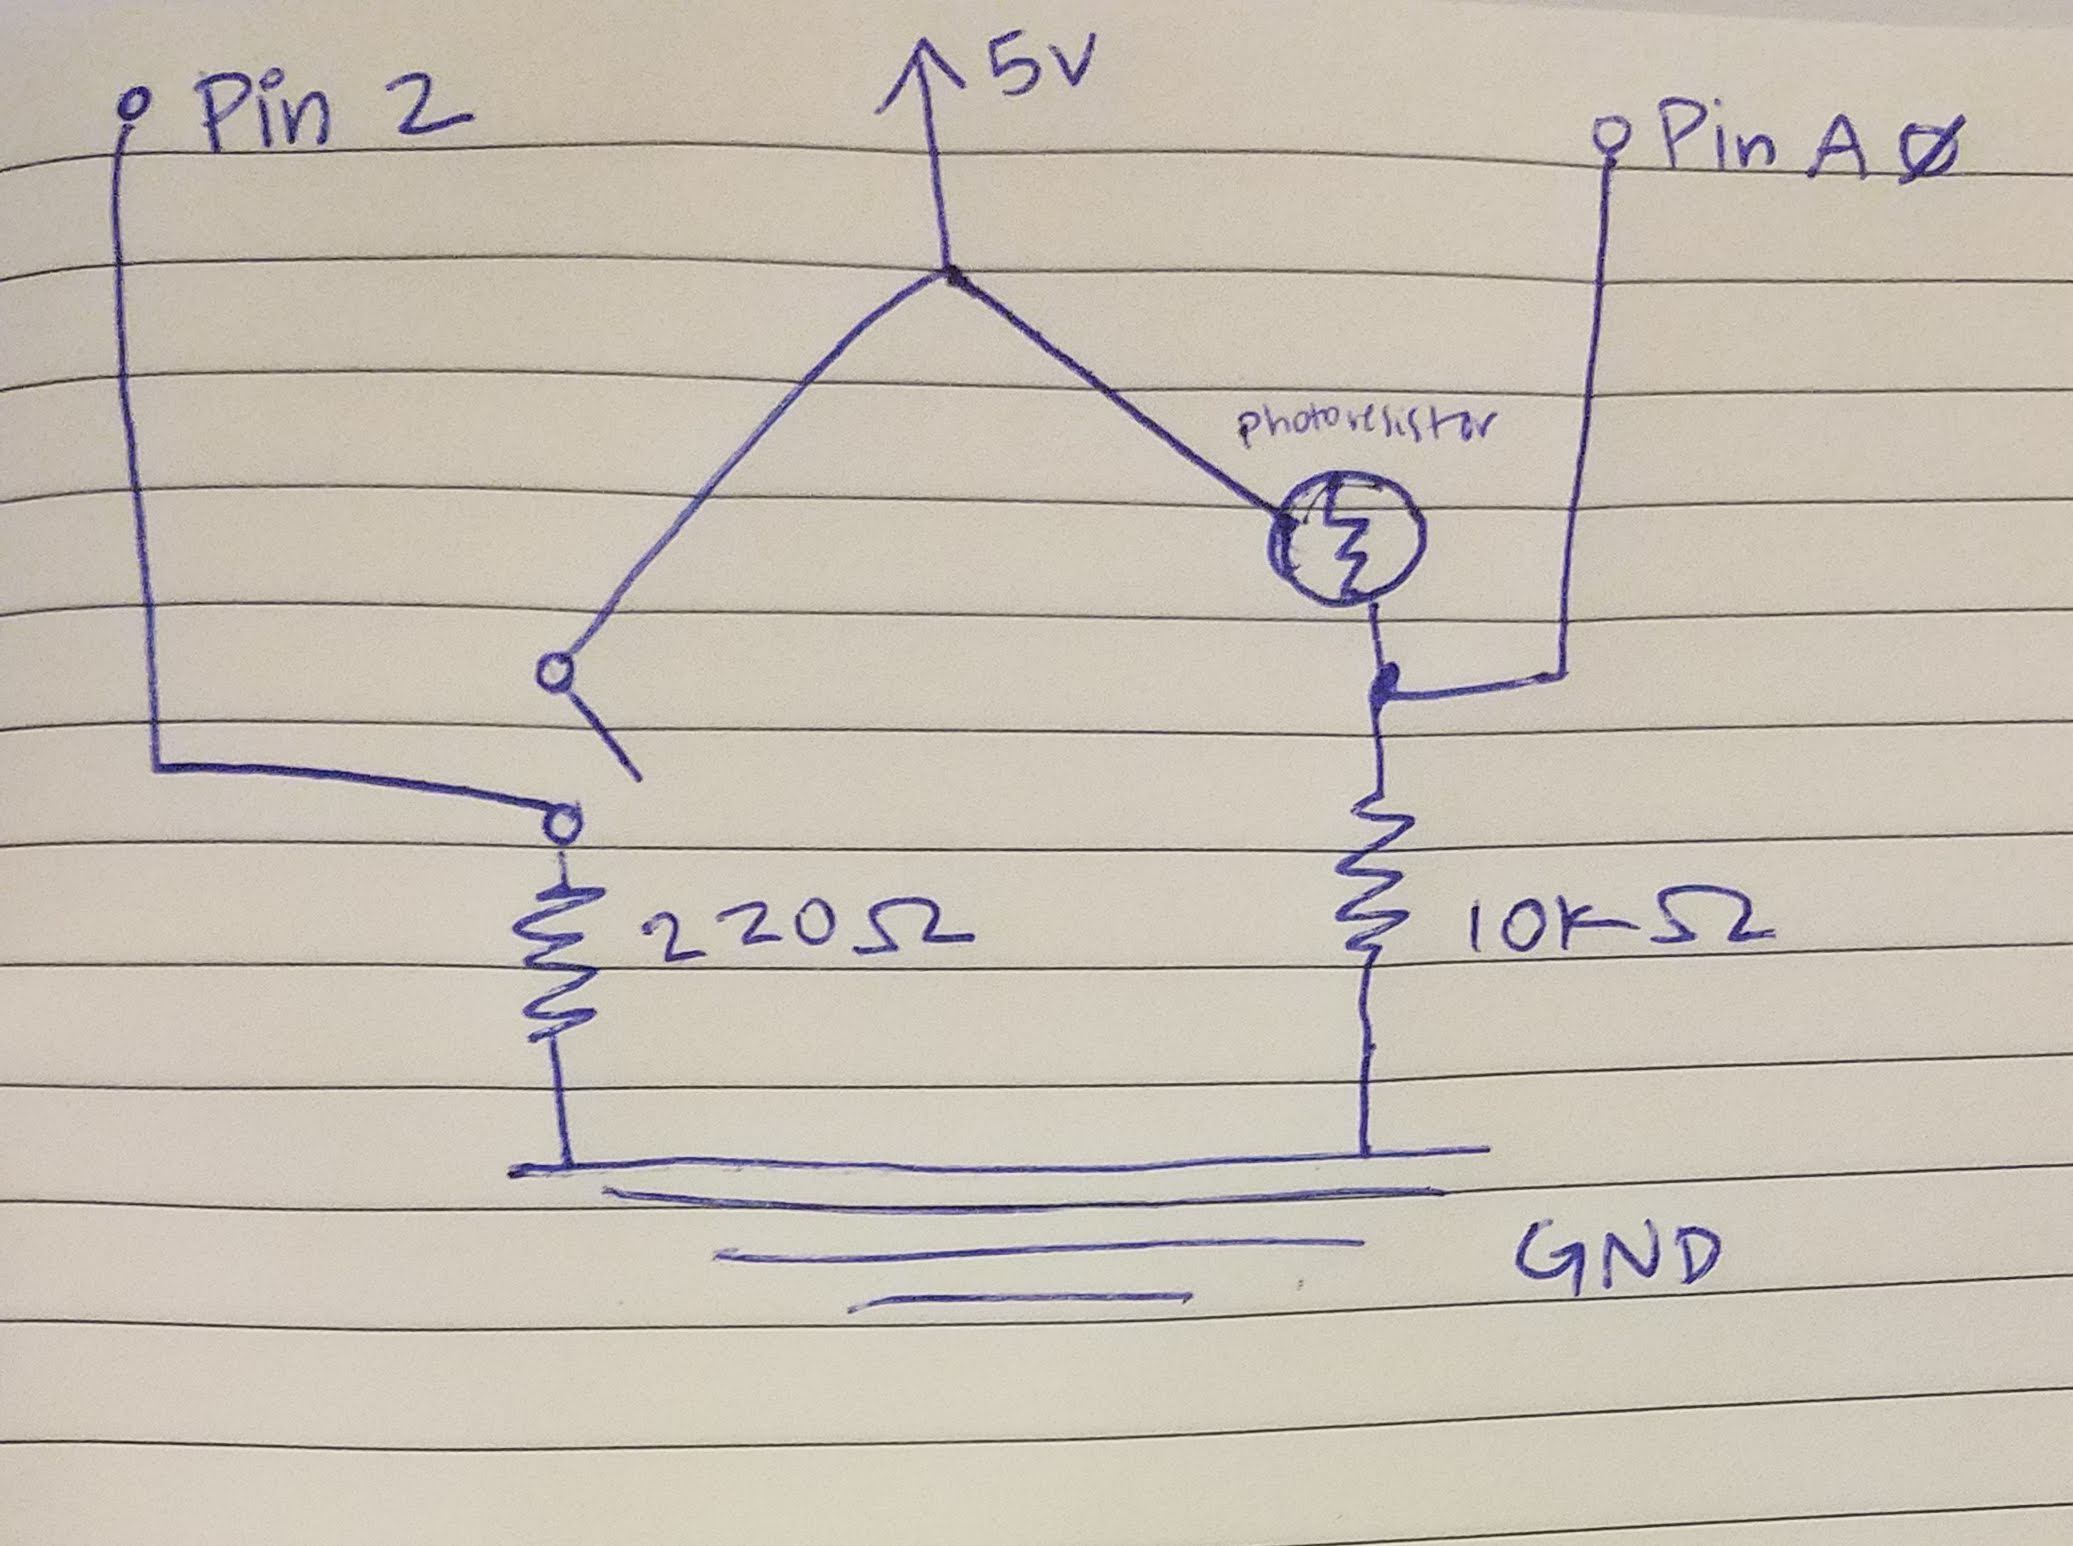 5V
Pin 2
Pin A0
photoresistor
220Ω
10KΩ
GND